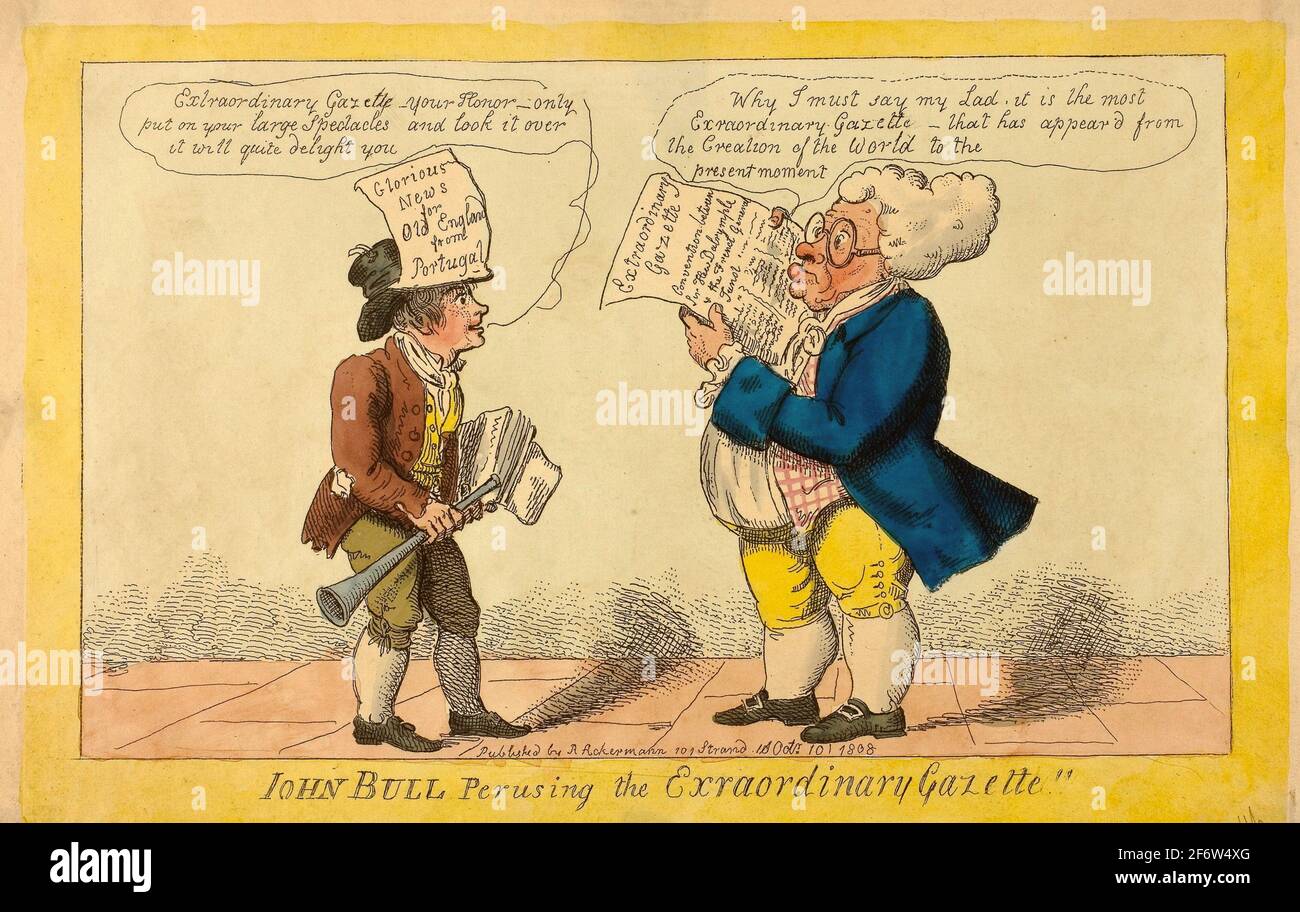 Extraordinary Gazette - your Honor - only
put on your large Spectacles and look it over
it will quite delight you
Why I must say my Lad, it is the most
Exraordinary Gazette - that has appear'd from
the Creation of the World to the
present moment
Glorious
News
for
Old England
from
Portugal
Extraordinary
Gazette
Convention between
Sir Hew Dalrymple
& the French General
Junot
Published by R Ackermann 101 Strand Octr 10 1808
JOHN BULL Perusing the Exraordinary Gazette!!
alamy
alamy
Image ID: 2F6W4XG
www.alamy.com